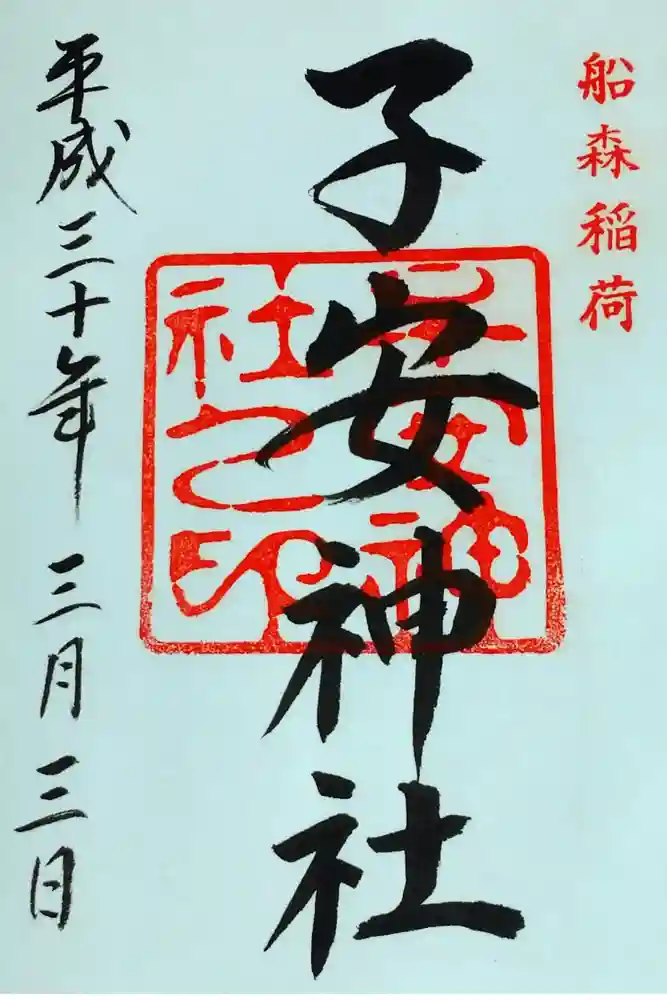 船森稲荷
子安神社
子安神
社之印
平成三十年 三月三日